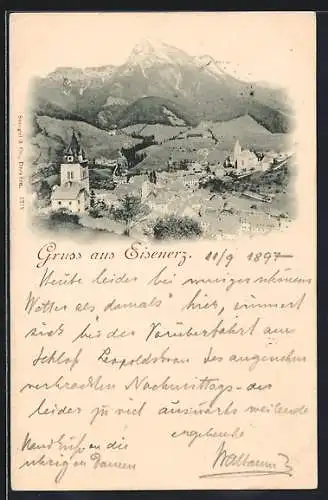 Stengel & Co., Dresden.
Gruss aus Eisenerz. 11/9 1897
Heute leider bei weniger schönem
Wetter als „damals" hier, erinnert
sich bei der Vorüberfahrt am
Schloß Leopoldstein des angenehm
verbrachten Nachmittags - der
leider zu viel auswärts weilende
ergebenste
Handküsse an die
übrigen Damen